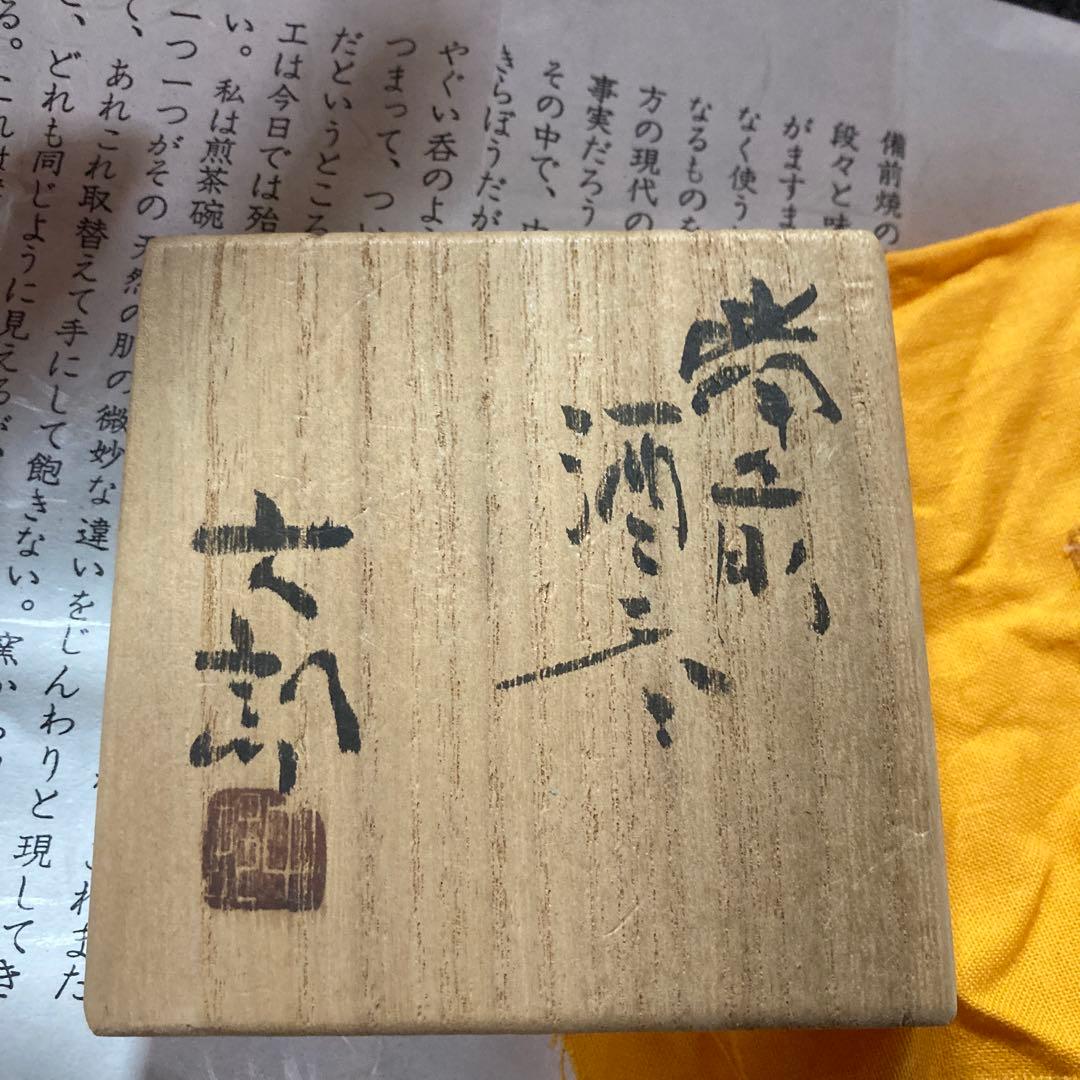 備前
酒呑
六郎
備前焼の
段々と味
がますま
なく使う
なるものを
方の現代の
事実だろう
その中で、
きらぼうだが
やぐい呑のよ
つまって、つい
だというところ
工は今日では殆
い。私は煎茶碗 これまた
一つ一つがその天然の肌の微妙な違いをじんわりと現してき
て、あれこれ取替えて手にして飽きない。窯か
、どれも同じように見えるが、
る。これは